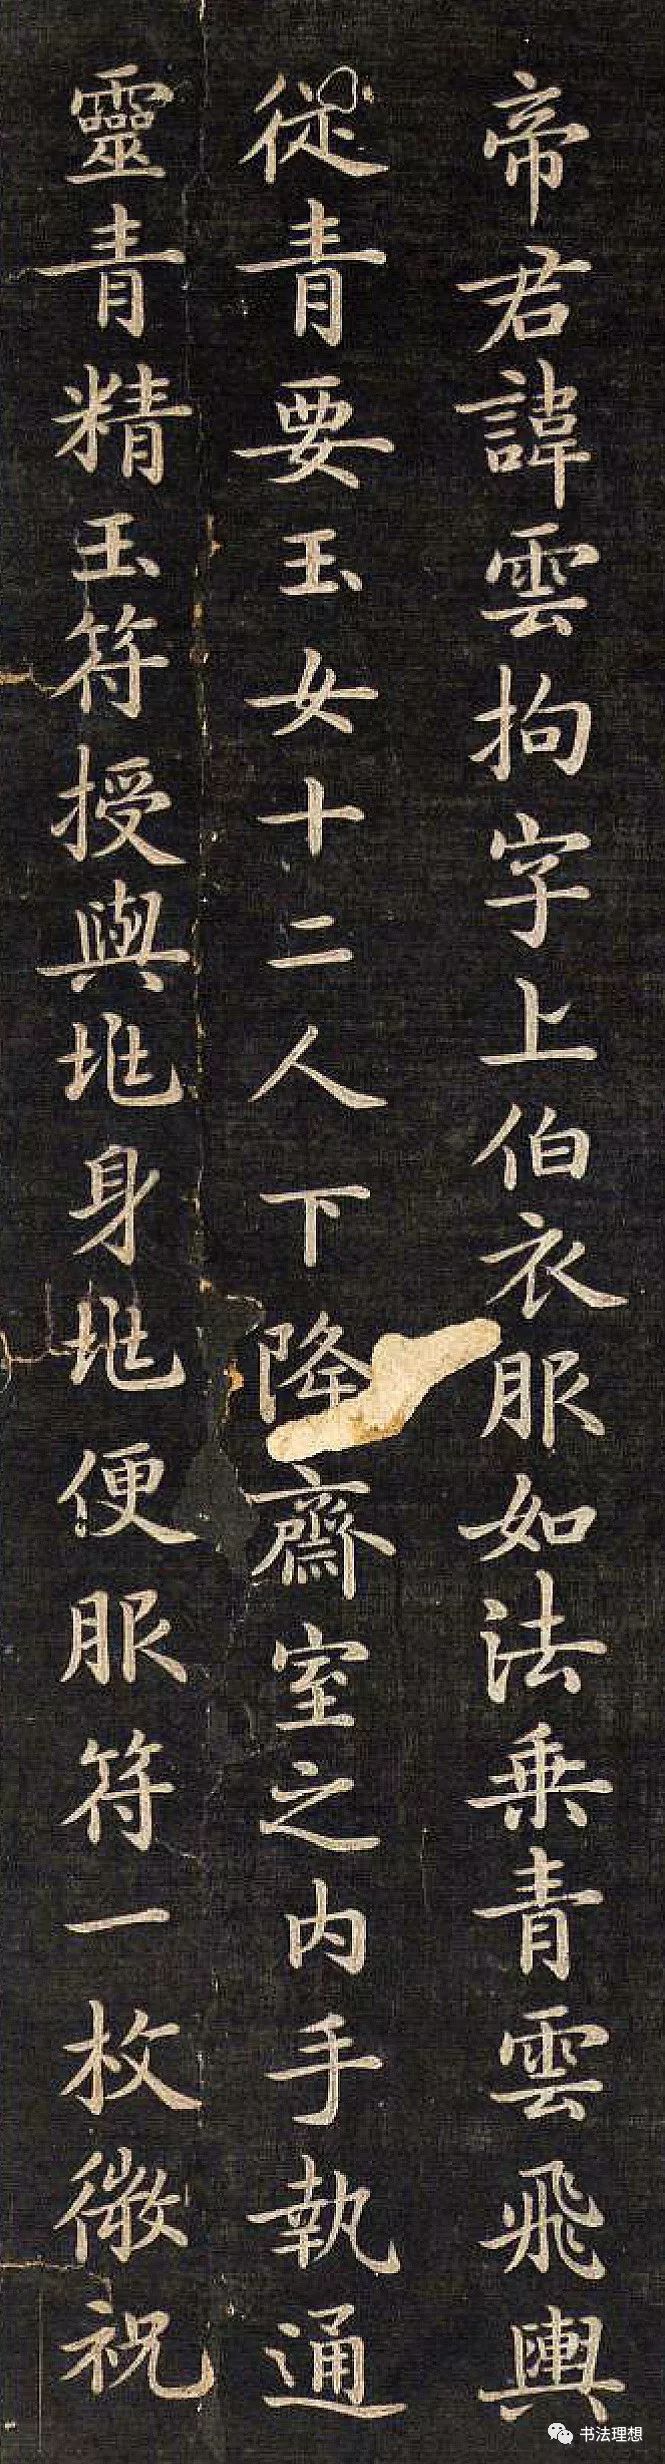 帝君諱雲拘字上伯衣服如法乘青雲飛輿
從青要玉女十二人下降齋室之内手執通
靈青精玉符授與兆身兆便服符一枚微祝
书法理想